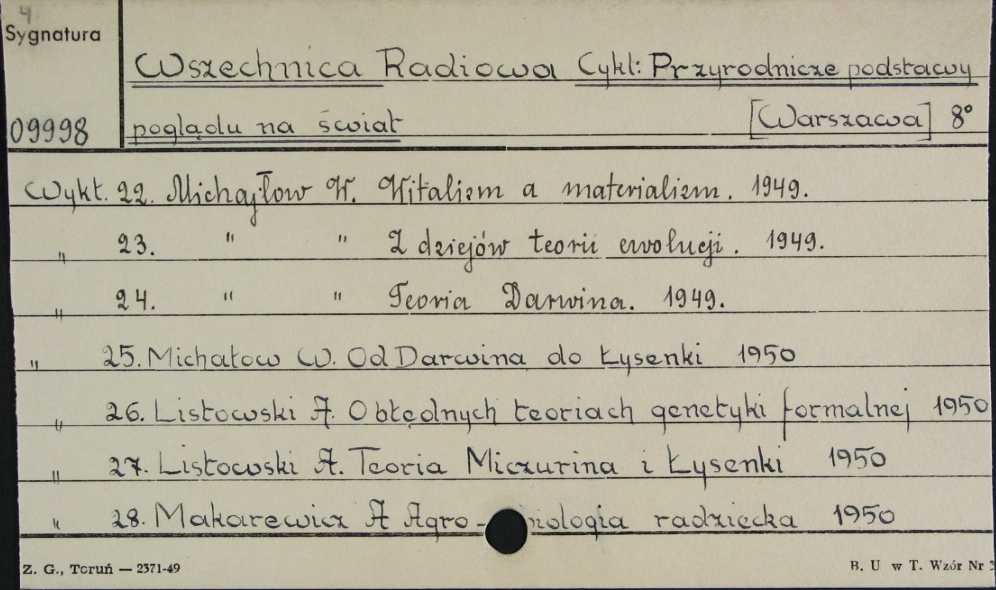 4
Sygnatura
Wszechnica Radiowa Cykl: Przyrodnicze podstawy
09998 poglądu na świat [Warszawa] 8°
Wykł. 22. Michajłow W. Witalizm a materializm. 1949.
" 23. " " Z dziejów teorii ewolucji. 1949.
" 24. " " Teoria Darwina. 1949.
" 25. Michałow W. Od Darwina do Łysenki 1950
" 26. Listowski A. O błędnych teoriach genetyki formalnej 1950
" 27. Listowski A. Teoria Miczurina i Łysenki 1950
" 28. Makarewicz A Agro- radziecka 1950
Z. G., Toruń — 2371-49 B. U w T. Wzór Nr